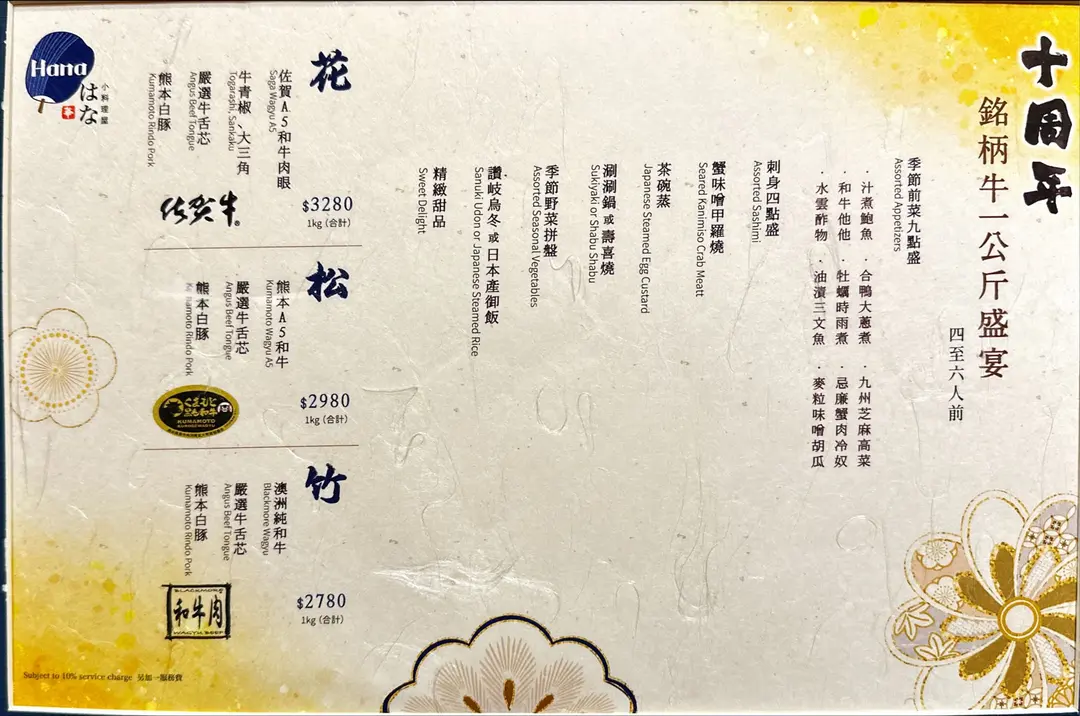 十周年
銘柄牛一公斤盛宴
四至六人前
季節前菜九點盛
Assorted Appetizers
· 汁煮鮑魚 · 合鴨大蔥煮 · 九州芝麻高菜
· 和牛他他 · 牡蠣時雨煮 · 忌廉蟹肉冷奴
· 水雲酢物 · 油漬三文魚 · 麥粒味噌胡瓜
刺身四點盛
Assorted Sashimi
蟹味噌甲羅燒
Seared Kanimiso Crab Meatt
茶碗蒸
Japanese Steamed Egg Custard
涮涮鍋 或 壽喜燒
Sukiyaki or Shabu Shabu
季節野菜拼盤
Assorted Seasonal Vegetables
讚岐烏冬 或 日本產御飯
Sanuki Udon or Japanese Steamed Rice
精緻甜品
Sweet Delight
花
佐賀A5和牛肉眼
Saga Wagyu A5
牛青椒、大三角
Togarashi, Sankaku
嚴選牛舌芯
Angus Beef Tongue
熊本白豚
Kumamoto Rindo Pork
$3280
1kg (合計)
佐賀牛®
松
熊本A5和牛
Kumamoto Wagyu A5
嚴選牛舌芯
Angus Beef Tongue
熊本白豚
Kumamoto Rindo Pork
$2980
1kg (合計)
くまもと
黒毛和牛
KUMAMOTO
竹
澳洲純和牛
Blackmore Wagyu
嚴選牛舌芯
Angus Beef Tongue
熊本白豚
Kumamoto Rindo Pork
$2780
1kg (合計)
BLACKMORE
和牛肉
WAGYU BEEF
Hana
はな
小料理屋
華
Subject to 10% service charge 另加一服務費